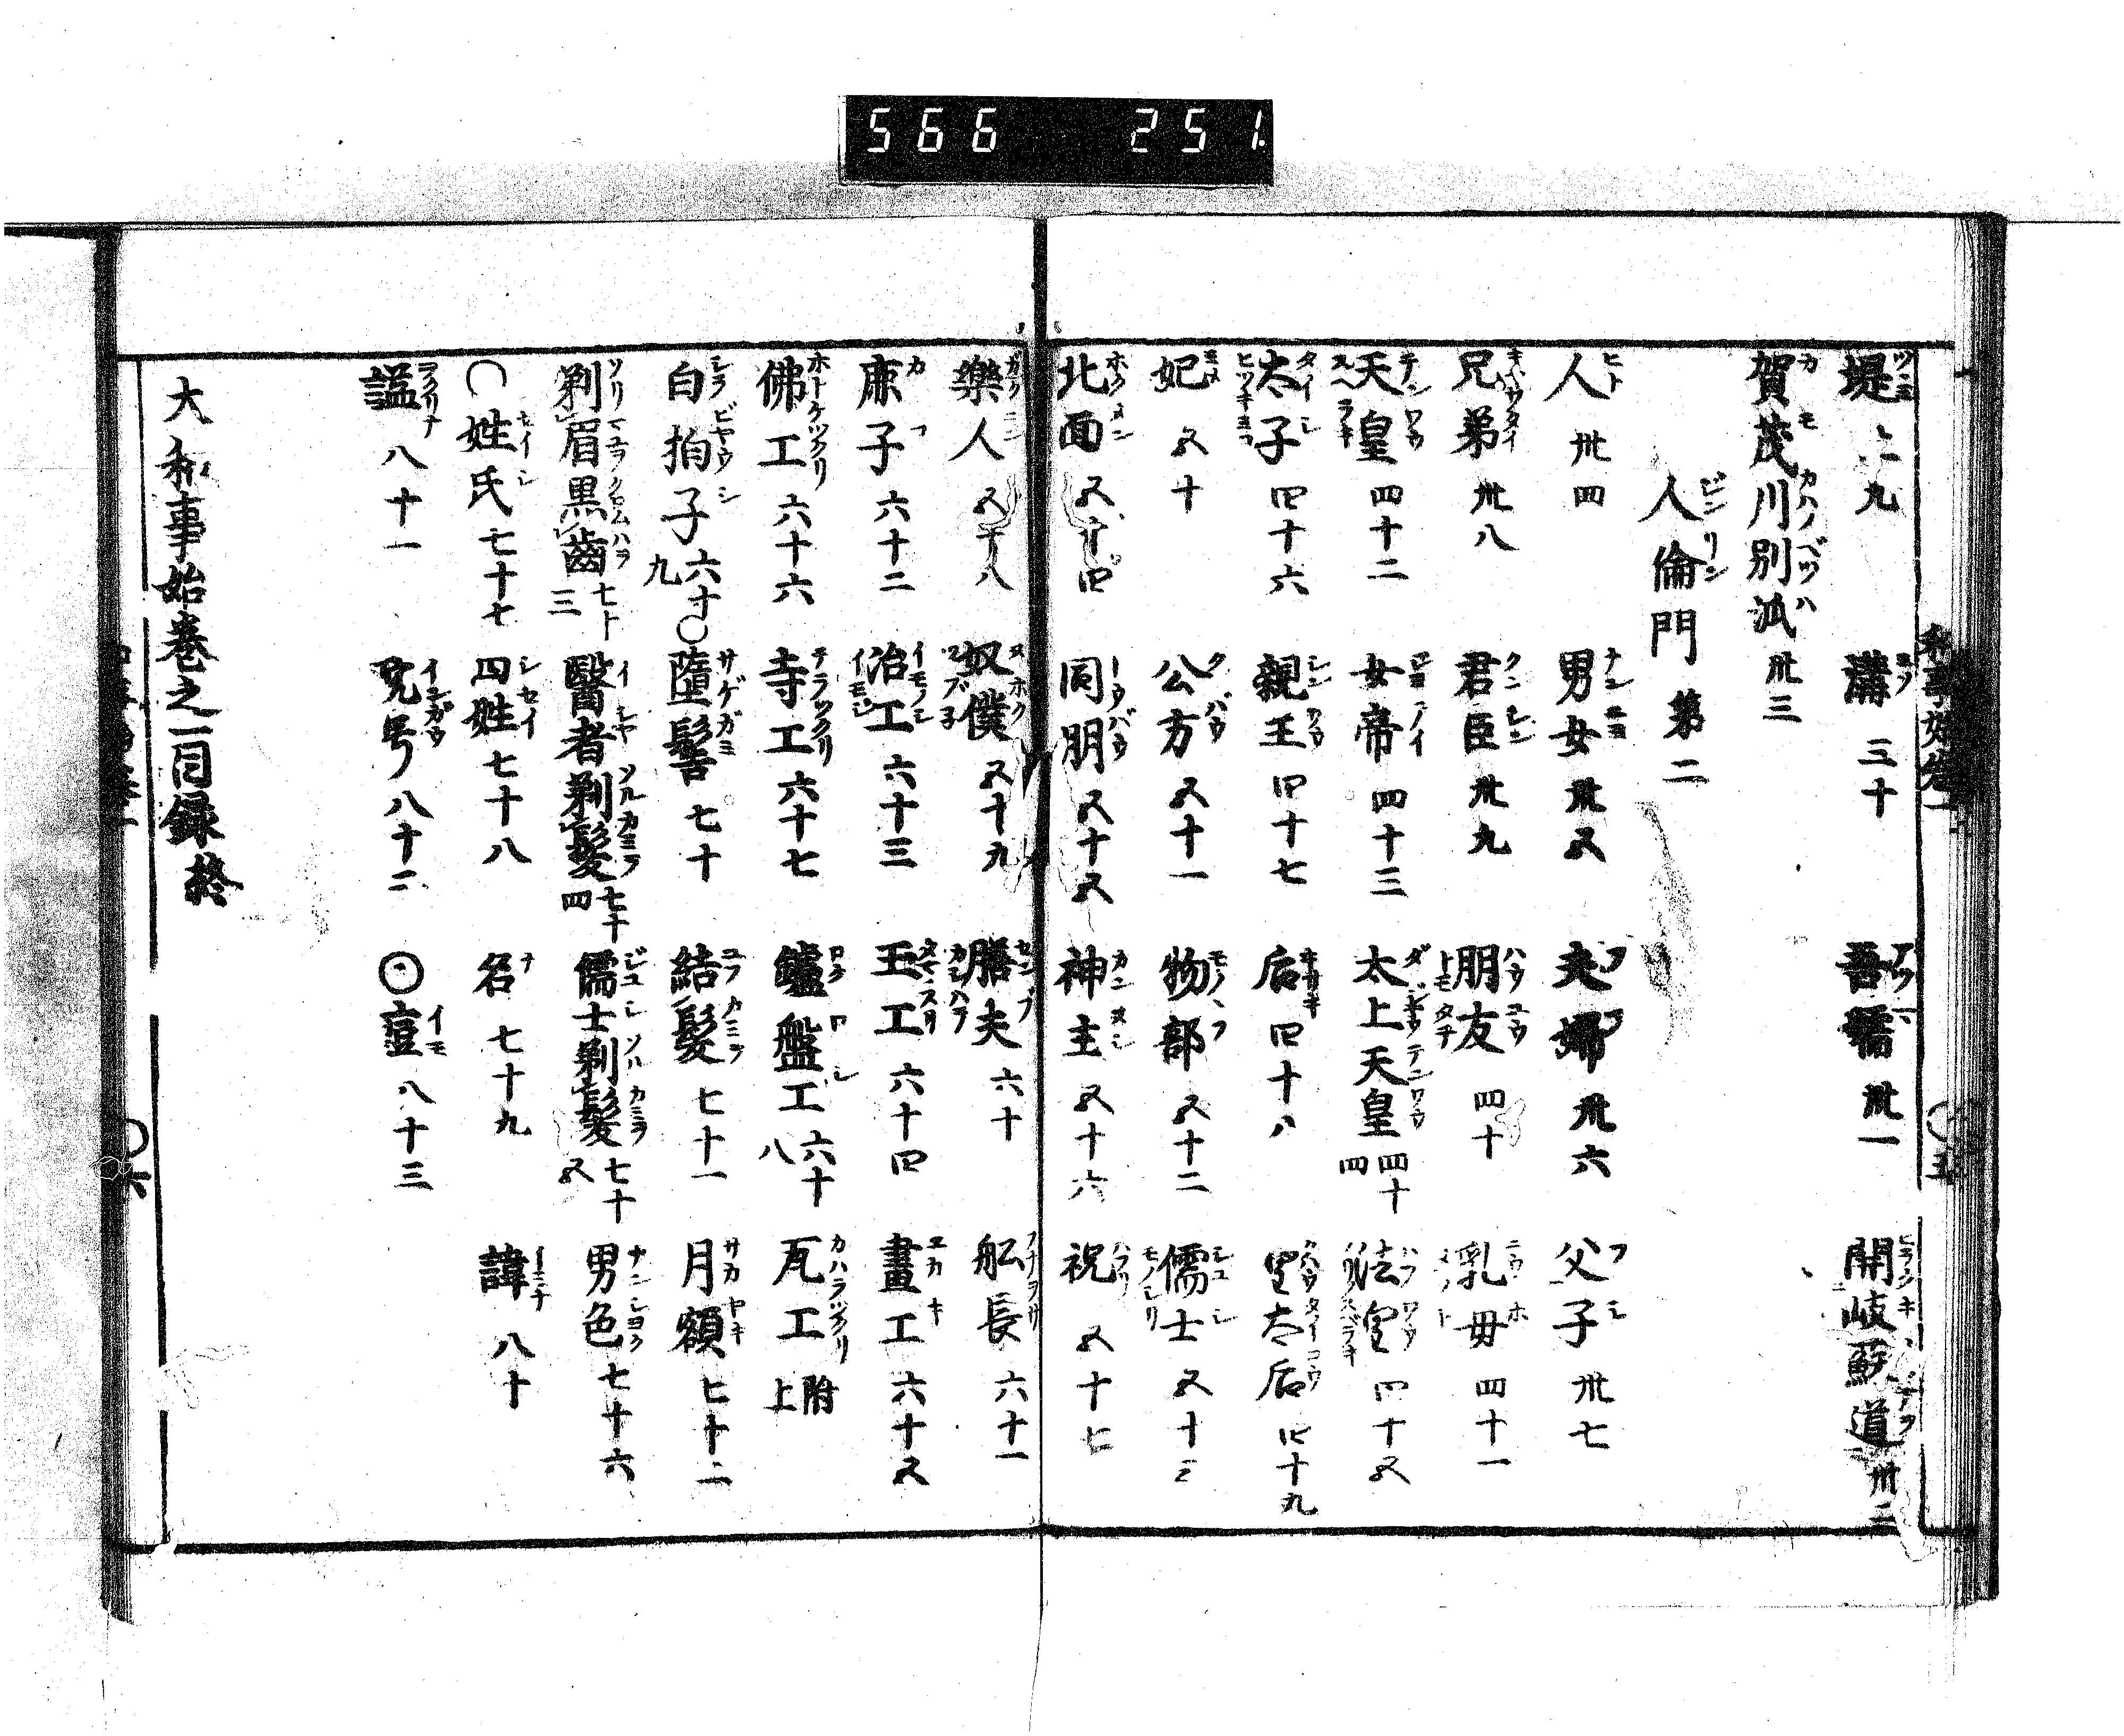 566 251
堤 二九 溝 三十 吾嬬 丗一 開岐蘇道 丗二
賀茂川別派 丗三
人倫門 第二
人 丗四 男女 丗五 夫婦 丗六 父子 丗七
兄弟 丗八 君臣 丗九 朋友 四十 乳母 四十一
天皇 四十二 女帝 四十三 太上天皇 四十四 法皇 四十五
太子 四十六 親王 四十七 后 四十八 皇太后 四十九
妃 五十 公方 五十一 物部 五十二 儒士 五十三
北面 五十四 同朋 五十五 神主 五十六 祝 五十七
樂人 五十八 奴僕 五十九 膳夫 六十 舩長 六十一
庶子 六十二 冶工 六十三 玉工 六十四 畫工 六十五
佛工 六十六 寺工 六十七 鑪盤工 六十八 瓦工 附上
白拍子 六十九 ○墮髻 七十 結髮 七十一 月額 七十二
剃眉黒齒 七十三 醫者剃髮 七十四 儒士剃髮 七十五 男色 七十六
○姓氏 七十七 四姓 七十八 名 七十九 諱 八十
諡 八十一 院号 八十二 ○痘 八十三
大和事始巻之一目録終